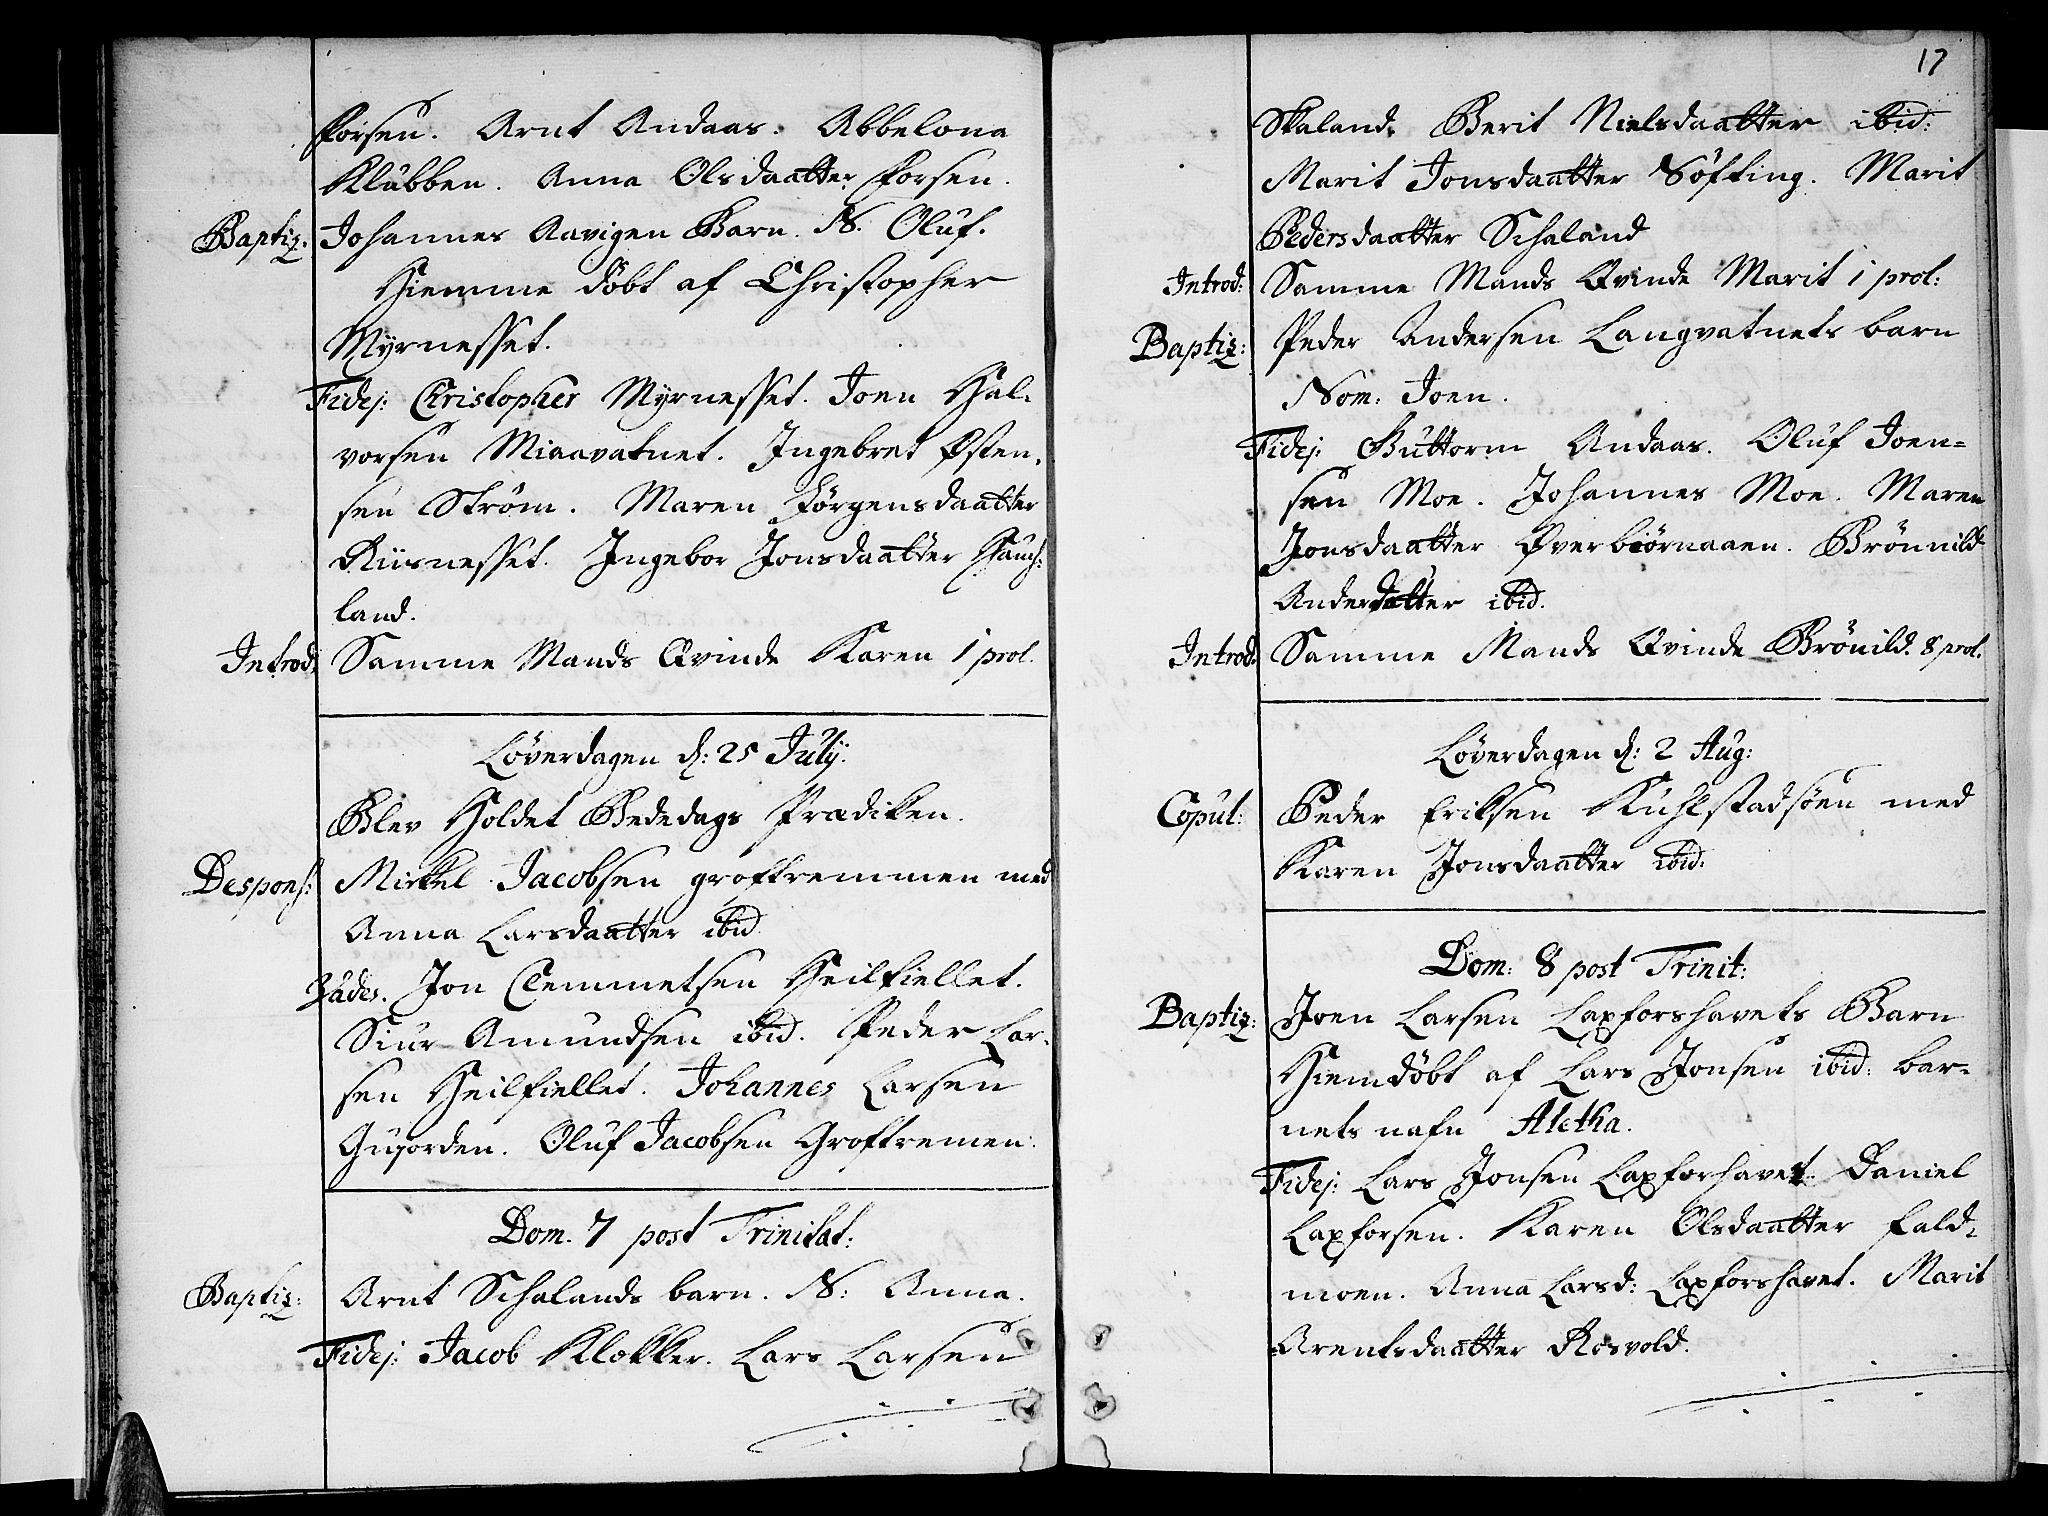 Forsen. Arnt Andaas. Abbelona
Klubben. Anna Olsdaatter Forsen.
Baptiz. Johannes Aavigen Barn. N. Oluf.
Hiemme döbt af Christopher
Myrnesset.
Fidej: Christopher Myrnesset. Joen Hal-
vorsen Miaavatnet. Ingebret Østen-
sen Ström. Maren Jörgensdaatter
Riisnesset. Ingebor Jonsdaatter
land.
Introd: Samme Mands Qvinde Karen 1 prol.
Löverdagen d: 25 Julij.
Blev Holdet Bededags Prædiken.
Despons: Mickel Jacobsen groftremmen med
Anna Larsdaatter ibid
Vades. Jon Clemmetsen Heilfiellet.
Siur Amundsen ibid. Peder Lar-
sen Heilfiellet. Johannes Larsen
Oluf Jacobsen Groftremen.
Dom. 7 post Trinitat:
Baptiz: Arnt Schalands barn. N: Anna.
Fidej: Jacob Klokker. Lars Larsen
17
Skaland. Berit Nielsdaatter ibid:
Marit Jonsdaatter Söfting. Marit
Pedersdaatter Schaland
Introd: Samme Mands Qvinde Marit 1 prol:
Baptiz: Peder Andersen Langvatnets barn
Nom: Joen.
Fidej: Guttorm Andaas. Oluf Joen-
sen Moe. Johannes Moe. Maren
Jonsdaatter Sverbiörnaaen. Brönnild
Andersdatter ibid.
Introd: Samme Mands Qvinde Brönild. 8 prol.
Löverdagen d: 2 Aug:
Copul: Peder Eriksen Kuhlstadsöen med
Karen Jonsdaatter ibid:
Dom: 8 post Trinit:
Baptiz: Joen Larsen Laxforshavets Barn
Hiemdöbt af Lars Jonsen ibid: bar-
nets nafn Aletha.
Fidej: Lars Jonsen Laxforshavet. Daniel
Laxforsen. Karen Olsdaatter Fald-
moen. Anna Larsd: Laxforshavet. Marit
Arentsdaatter Rosvold.